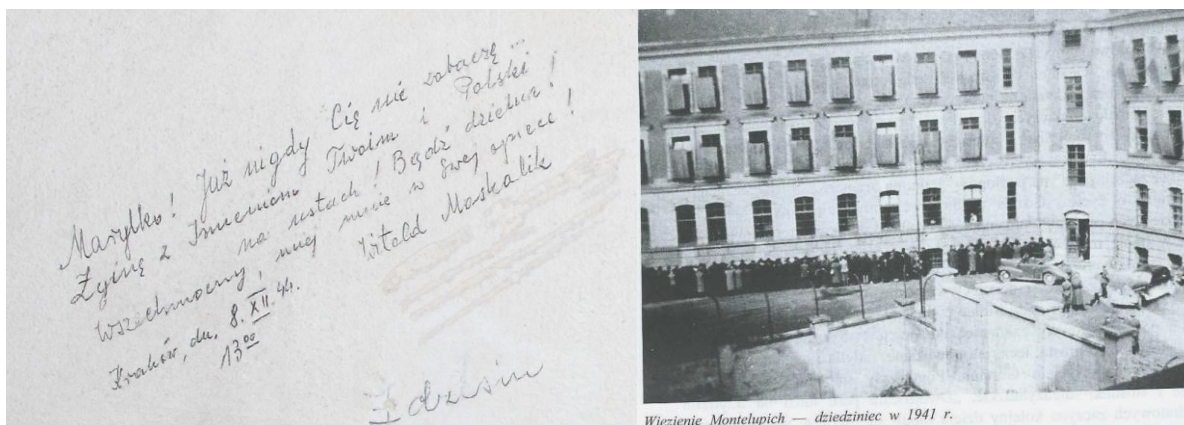 Marylko! Już nigdy Cię nie zobaczę...
Zginę z Imieniem Twoim i Polski
na ustach! Bądź dzielna!
Wszechmocny, miej mnie w Swej opiece!
Witold Maskalik
Kraków, dn. 8.XII.44.
13⁰⁰
Więzienie Montelupich — dziedziniec w 1941 r.